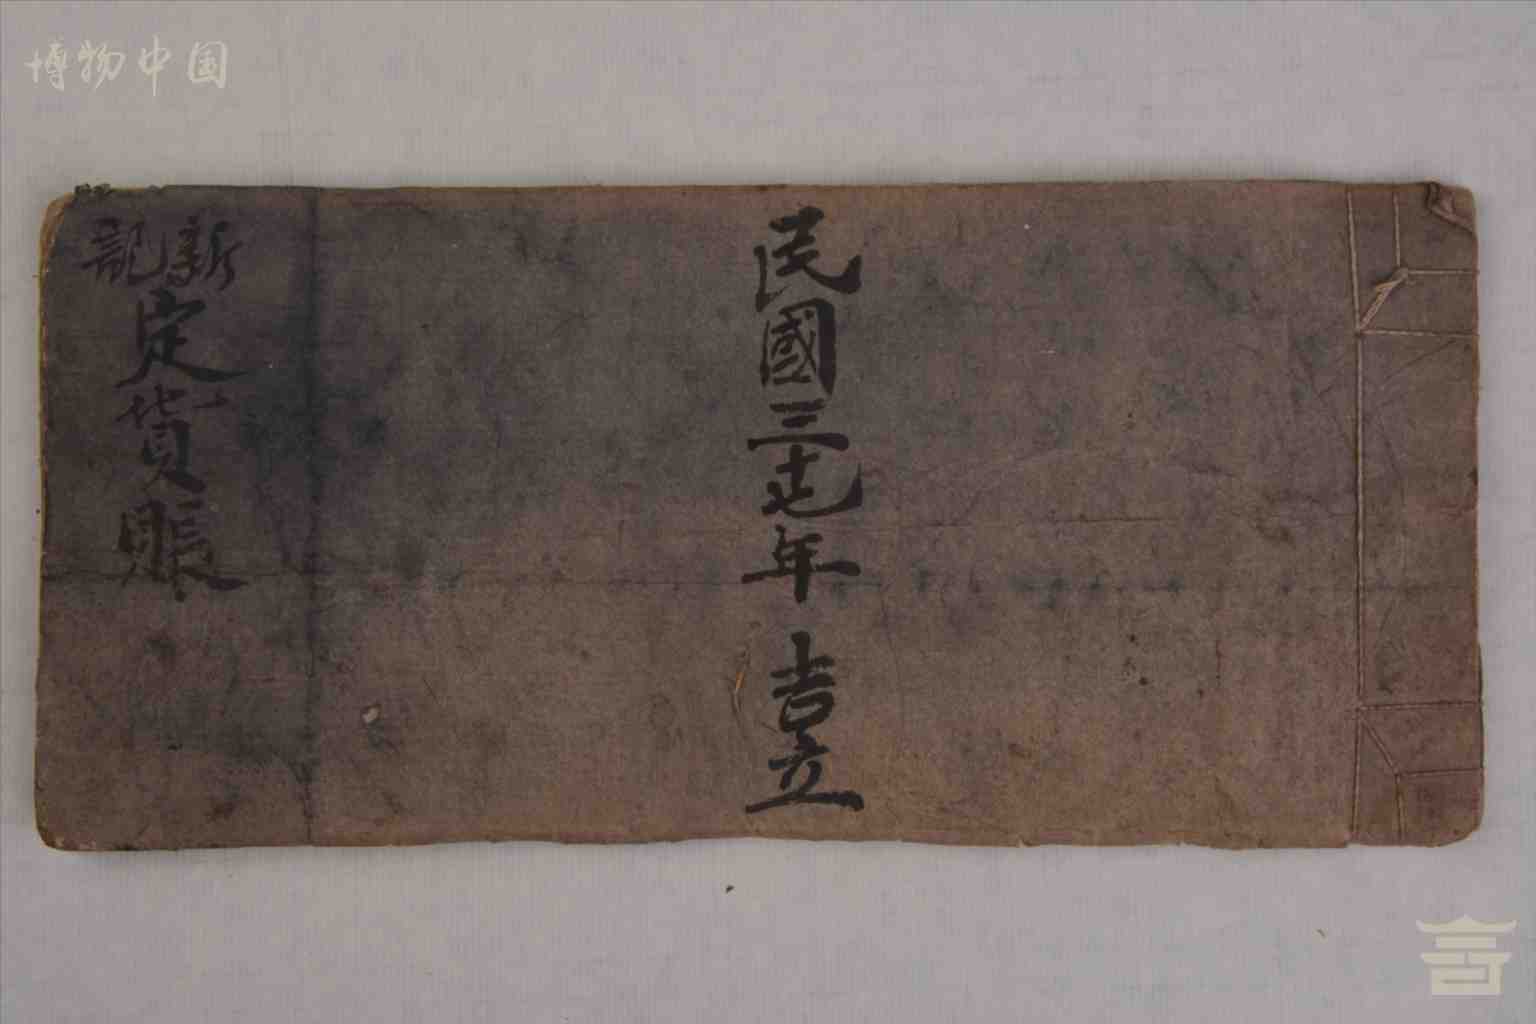 博物中国
民國三十七年 吉立
新記
定貨賬